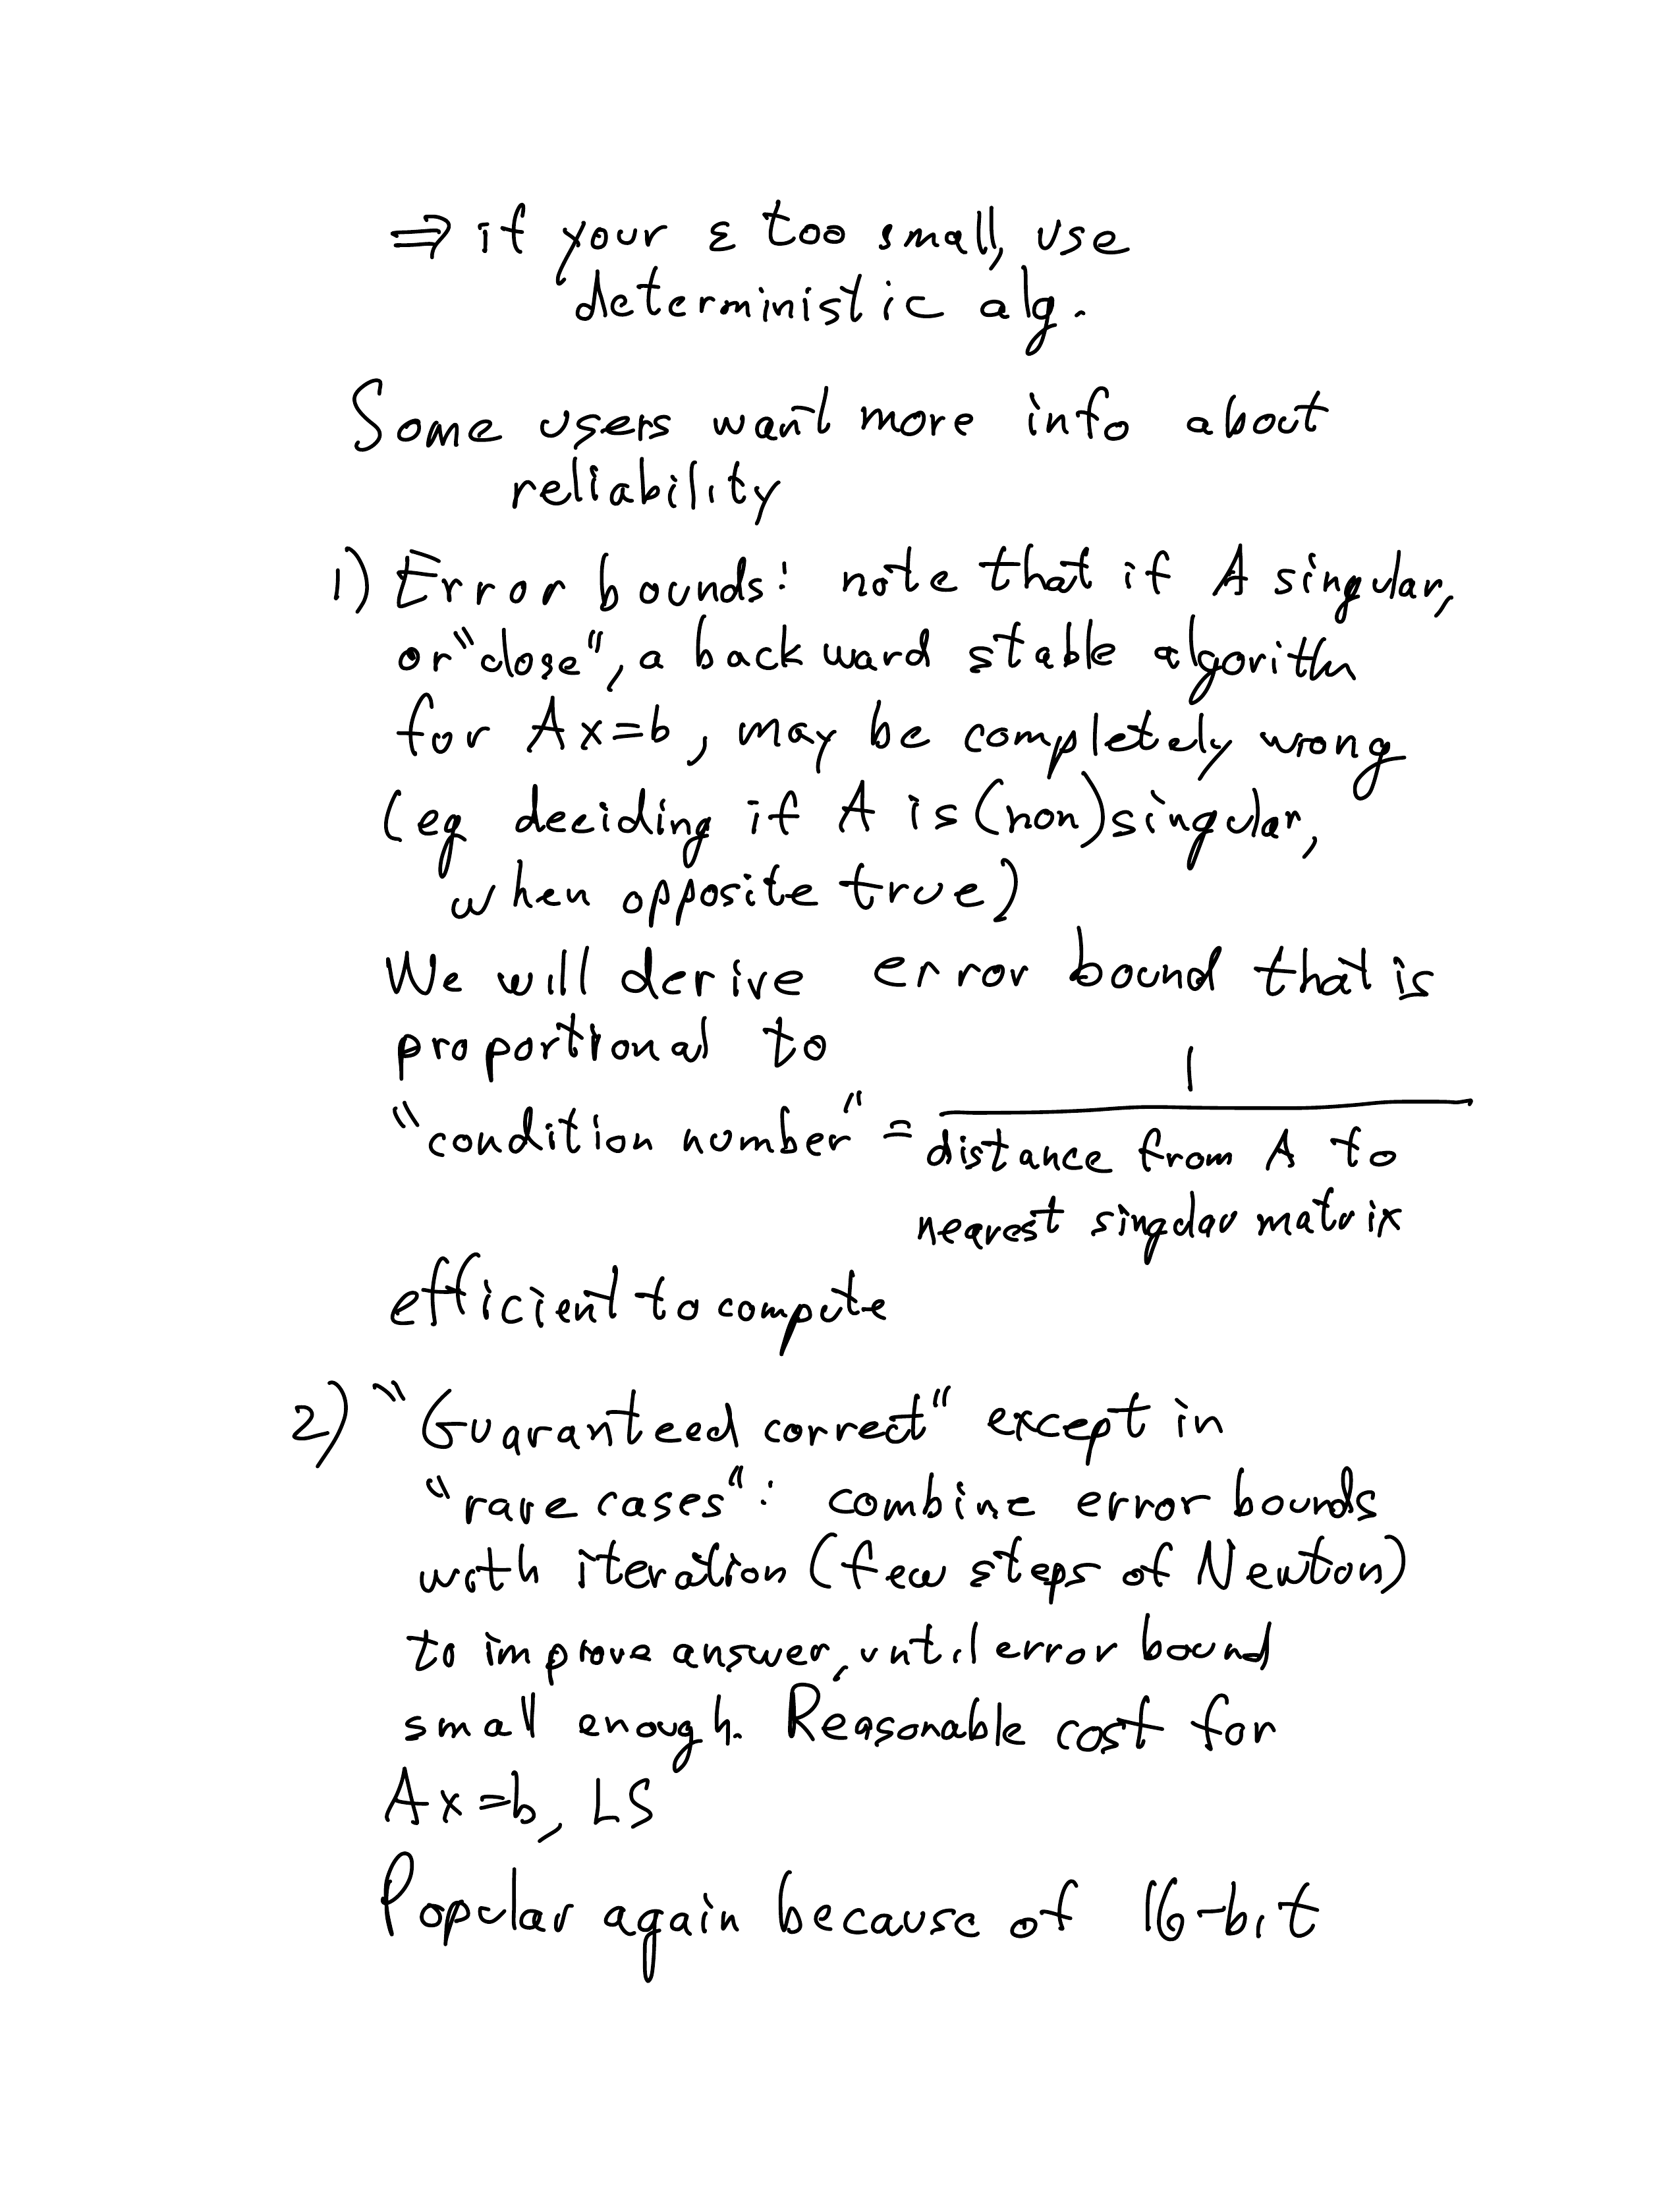 ⇒ if your ε too small, use
deterministic alg.
Some users want more info about
reliability
1) Error bounds: note that if A singular,
or "close", a backward stable algorithm
for Ax=b, may be completely wrong
(eg deciding if A is (non)singular,
when opposite true)
We will derive error bound that is
proportional to
1
"condition number" = distance from A to
nearest singular matrix
efficient to compute
2) "Guaranteed correct" except in
"rare cases": combine error bounds
with iteration (few steps of Newton)
to improve answer, until error bound
small enough. Reasonable cost for
Ax=b, LS
Popular again because of 16-bit